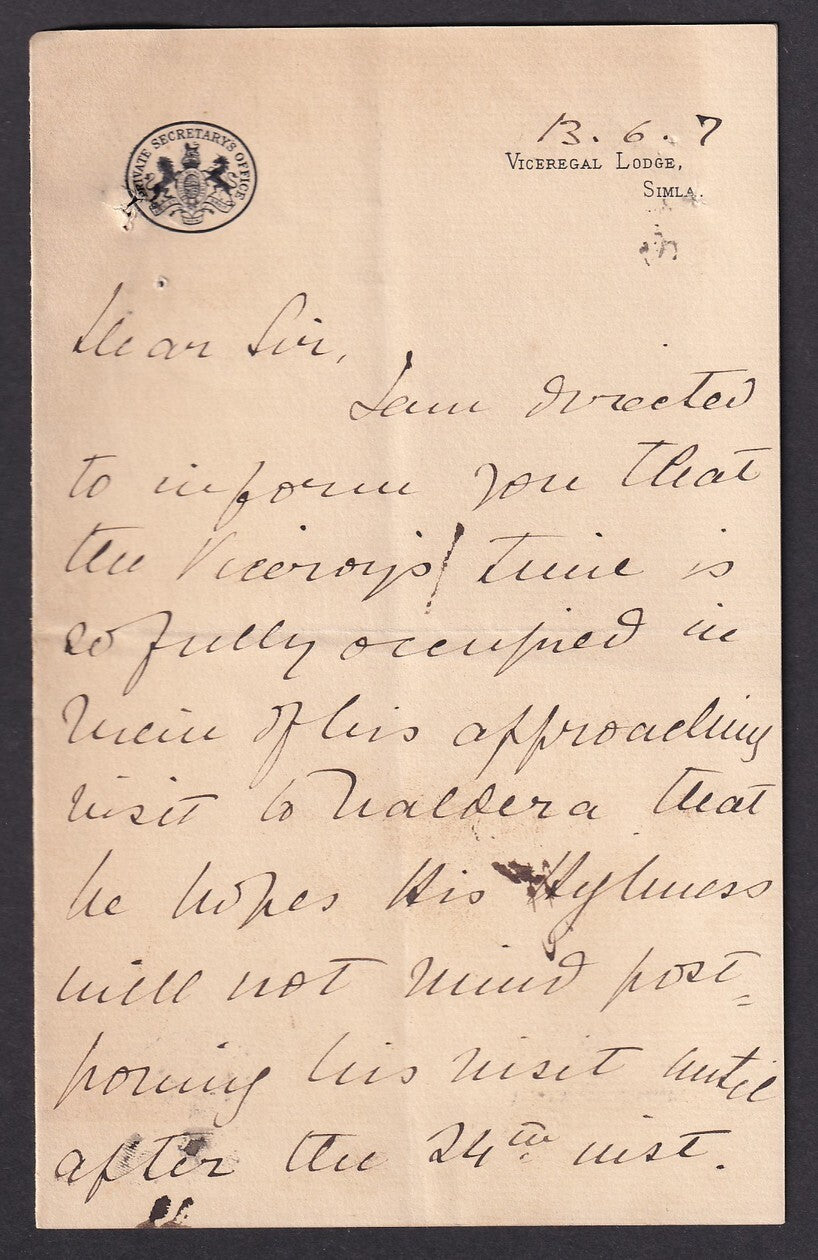 PRIVATE SECRETARY'S OFFICE
13. 6. 7
VICEREGAL LODGE,
SIMLA.
Dear Sir,
I am directed
to inform you that
the Viceroy's time is
so fully occupied in
view of his approaching
visit to Naldera that
he hopes His Highness
will not mind post=
poning his visit until
after the 24th inst.